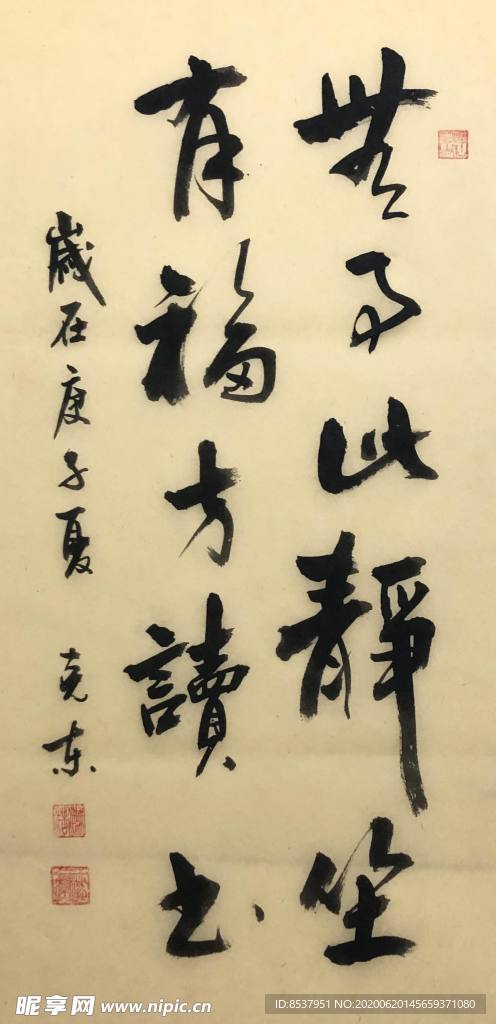 無事此靜坐
有福方讀書
歲在庚子夏 克東
昵享网 www.nipic.cn
ID:8537951 NO:20200620145659371080